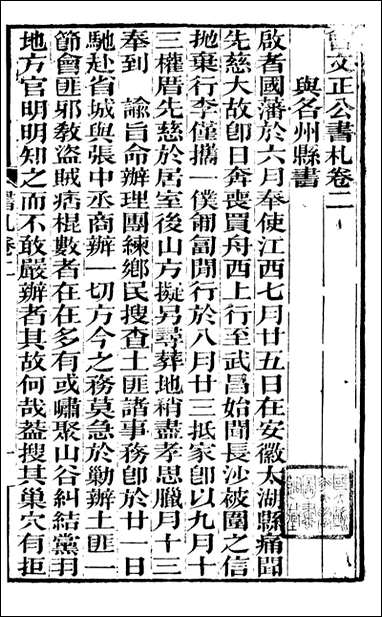 曾文正公書札卷二
與各州縣書
啟者國藩於六月奉使江西七月廿五日在安徽太湖縣痛聞
先慈大故卽日奔喪買舟西上行至武昌始聞長沙被圍之信
拋棄行李僅攜一僕匍匐閒行於八月廿三抵家卽以九月十
三權厝先慈於居室後山方擬另尋葬地稍盡孝思臘月十三
奉到　諭旨命辦理團練鄉民搜查土匪諸事務卽於廿一日
馳赴省城與張中丞商辦一切方今之務莫急於勦辦土匪一
節會匪邪教盜賊痞棍數者在在多有或嘯聚山谷糾結黨羽
地方官明明知之而不敢嚴辦者其故何哉蓋搜其巢穴有拒
書札卷二